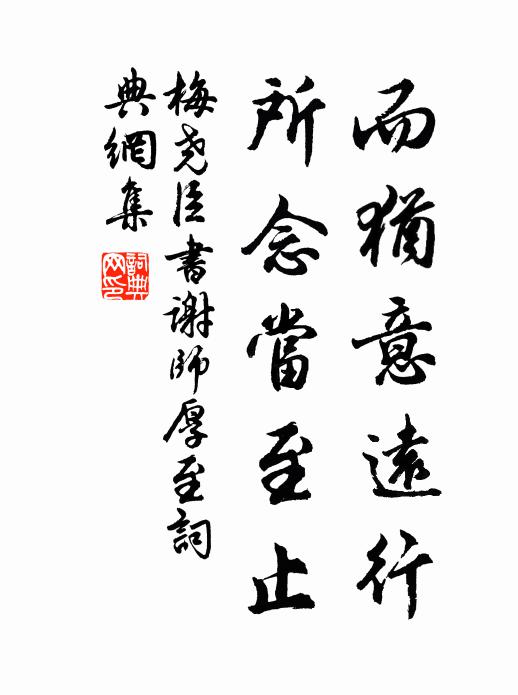 而猶意遠行
所念當至止
梅堯臣書謝師厚至詞
典網集
詞典網印